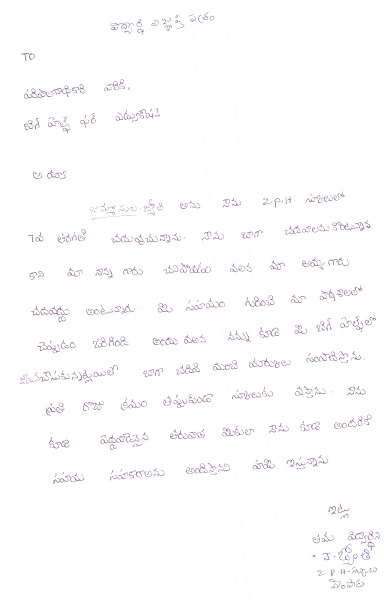 విద్యార్థి విజ్ఞప్తి పత్రం
TO
పరిపాలనాధికారి వారికి,
బిగ్ హెల్ప్ ఫర్ ఎడ్యుకేషన్
అయ్యా
జ్యోతి అను నేను Z.P.H. స్కూలులో
7వ తరగతి చదువుచున్నాను. నేను బాగా చదవాలనుకొంటున్నా
కాని మా నాన్న గారు చనిపోయిన వలన మా అమ్మ గారు
చదువద్దు అంటున్నారు మీ సహాయం గురించి మా పాఠశాలలో
చెప్పడం జరిగింది అందు వలన నన్ను కూడా మీ బిగ్ హెల్ప్ లో
బాగా చదివి మంచి మార్కులు సంపాదిస్తాను.
ప్రతి రోజు క్రమం తప్పకుండా స్కూలుకు వస్తాను. నేను
కూడా పెద్దదానినైన తరువాత మీకులా నేను కూడా అందరికి
సహాయ సహకారాలను అందిస్తానని హామి ఇస్తున్నాను
ఇట్లు
తమ విద్యార్థిని
J. జ్యోతి
Z.P.H. స్కూలు